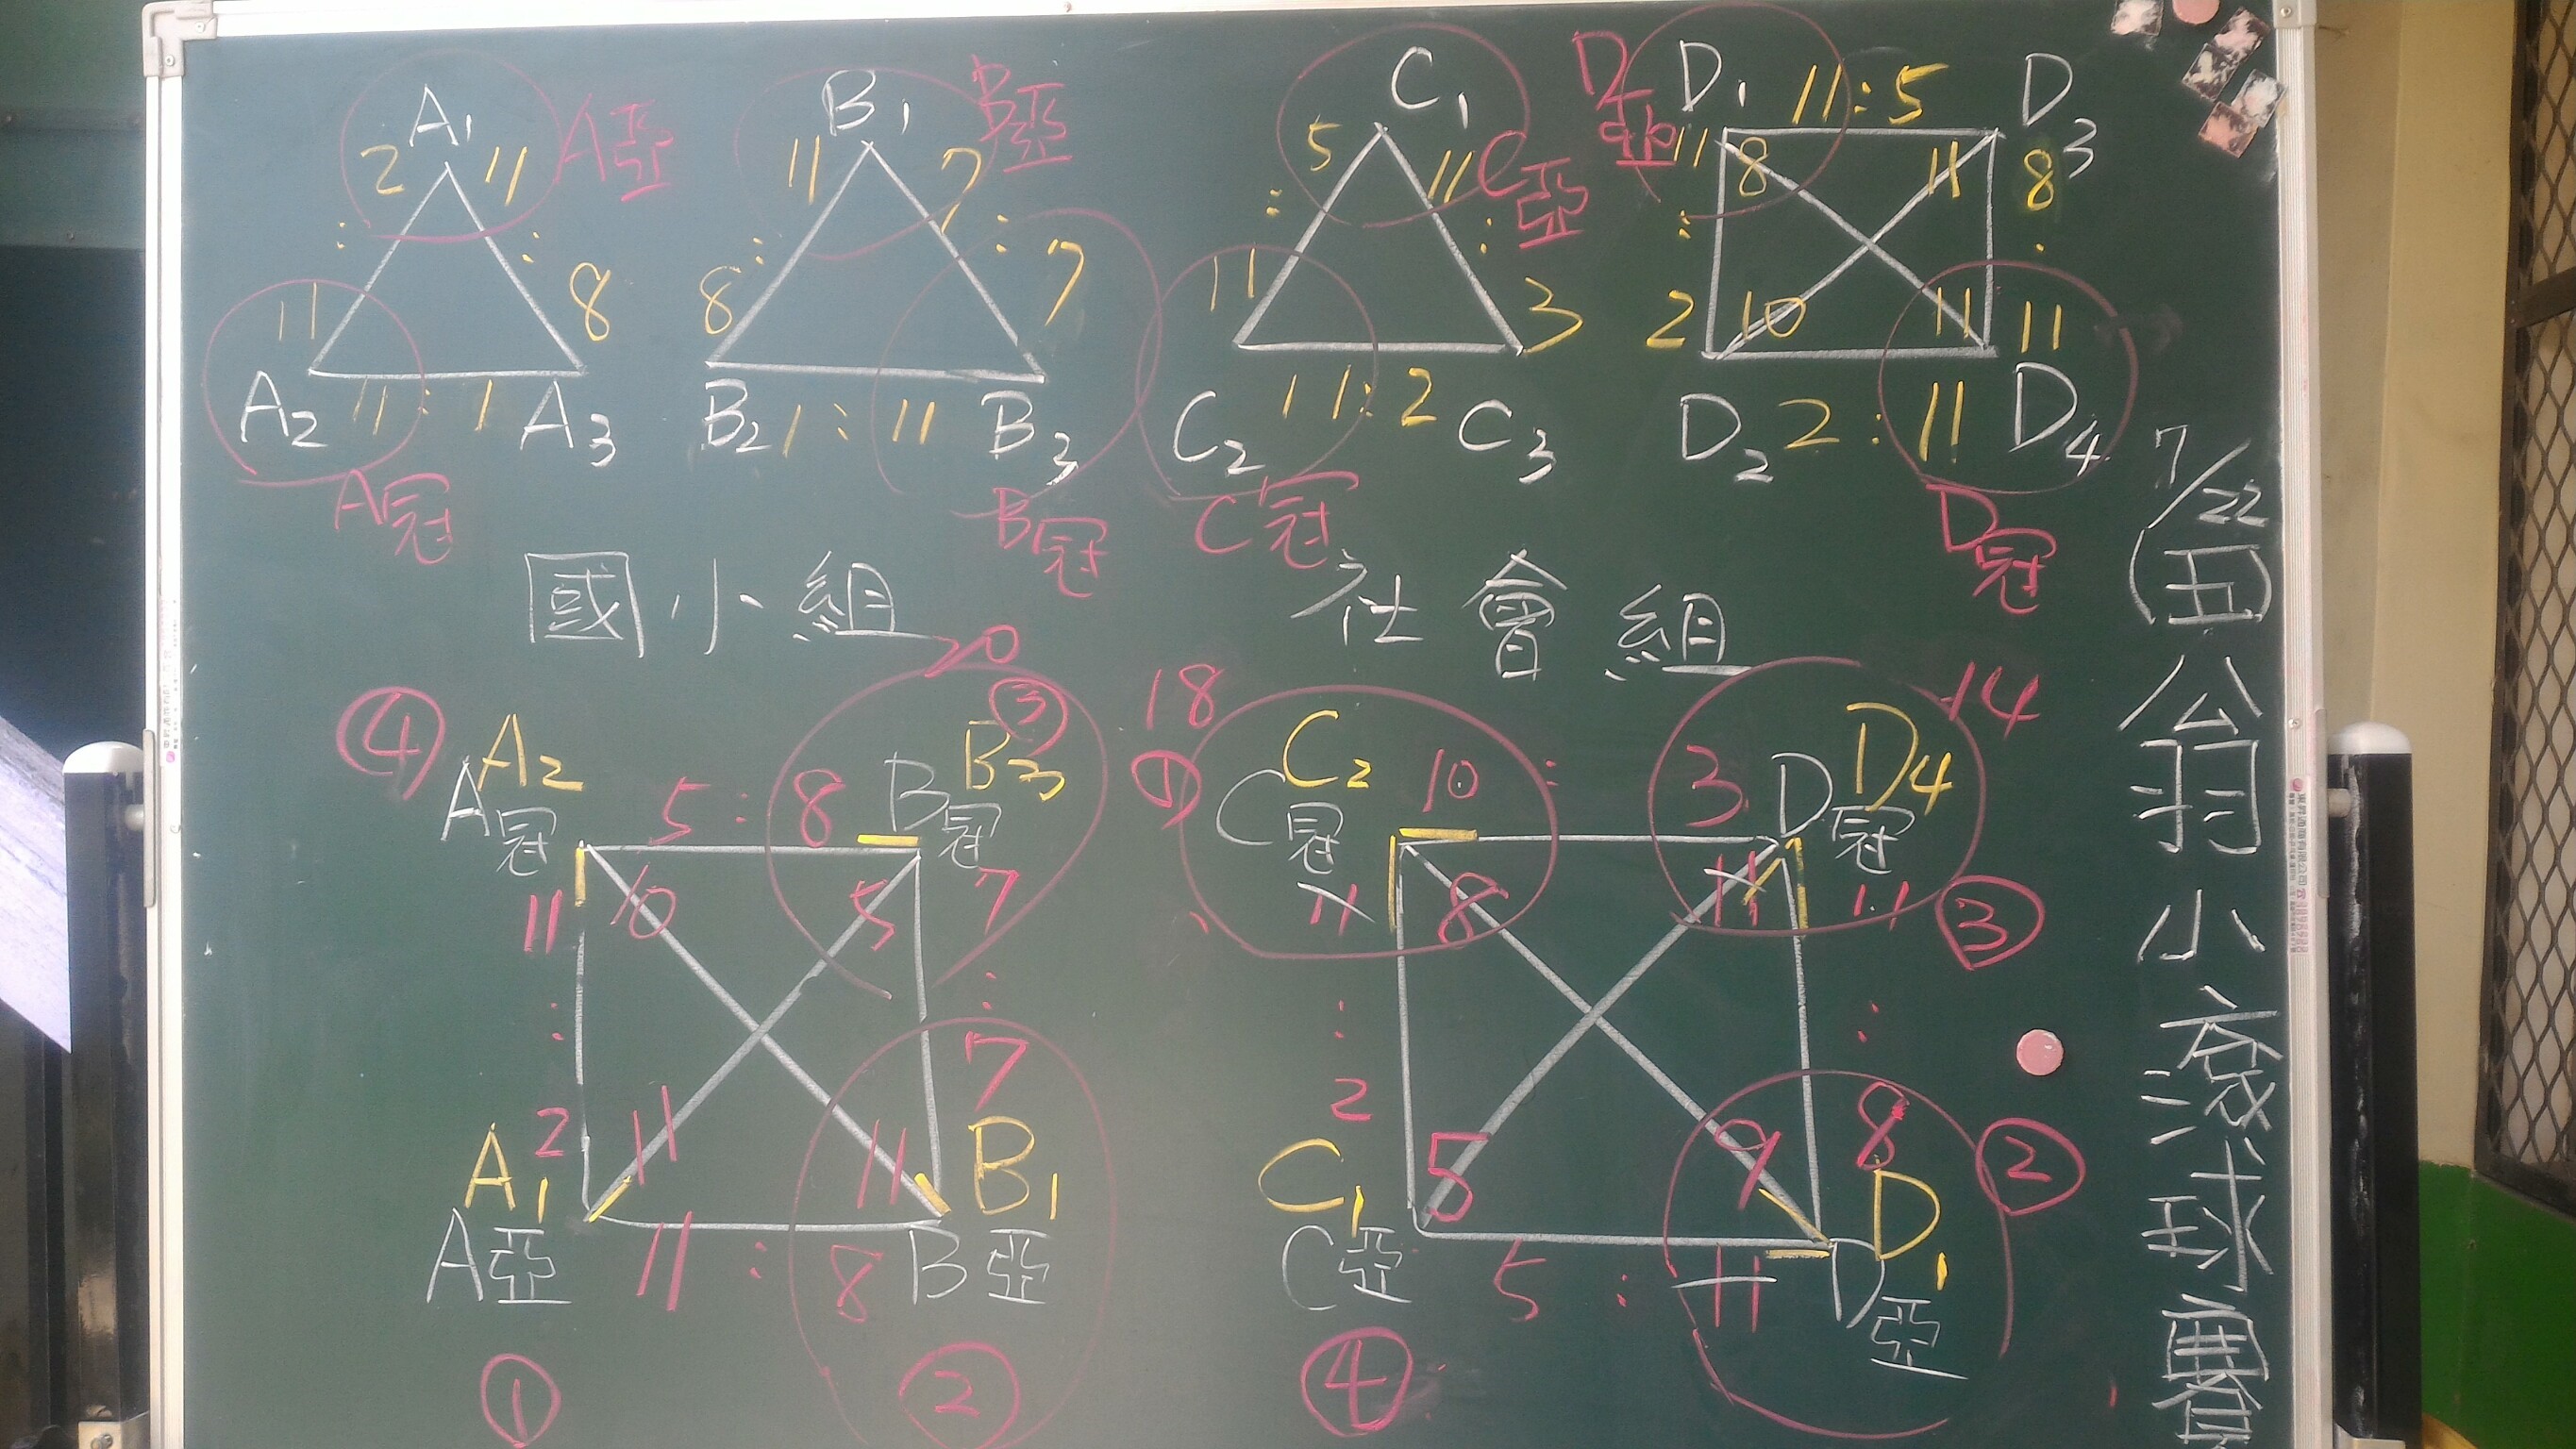 7/22(五)公翁小滾球賽
A1 A亞
2 : 11
11 : 8
A2 11 : 1 A3
A冠
B1 B亞
11 : 8
7 : 7
B2 1 : 11 B3
B冠
國小組
C1 C亞
5 : 11
11 : 3
C2 11 : 2 C3
C冠
D亞 D1 11:5 D3
11 8 11 8
: :
2 10 11 11
D2 2 : 11 D4
D冠
社會組
20
④ A2 B3 ③
A冠 5 : 8 B冠
11 10 5 7
: :
2 11 11 7
A1 B1
A亞 11 : 8 B亞
① ②
18 14
① C2 D4
C冠 10 : 3 D冠
11 8 11 11 ③
: :
2 5 9 8 ②
C1 D1
C亞 5 : 11 D亞
④